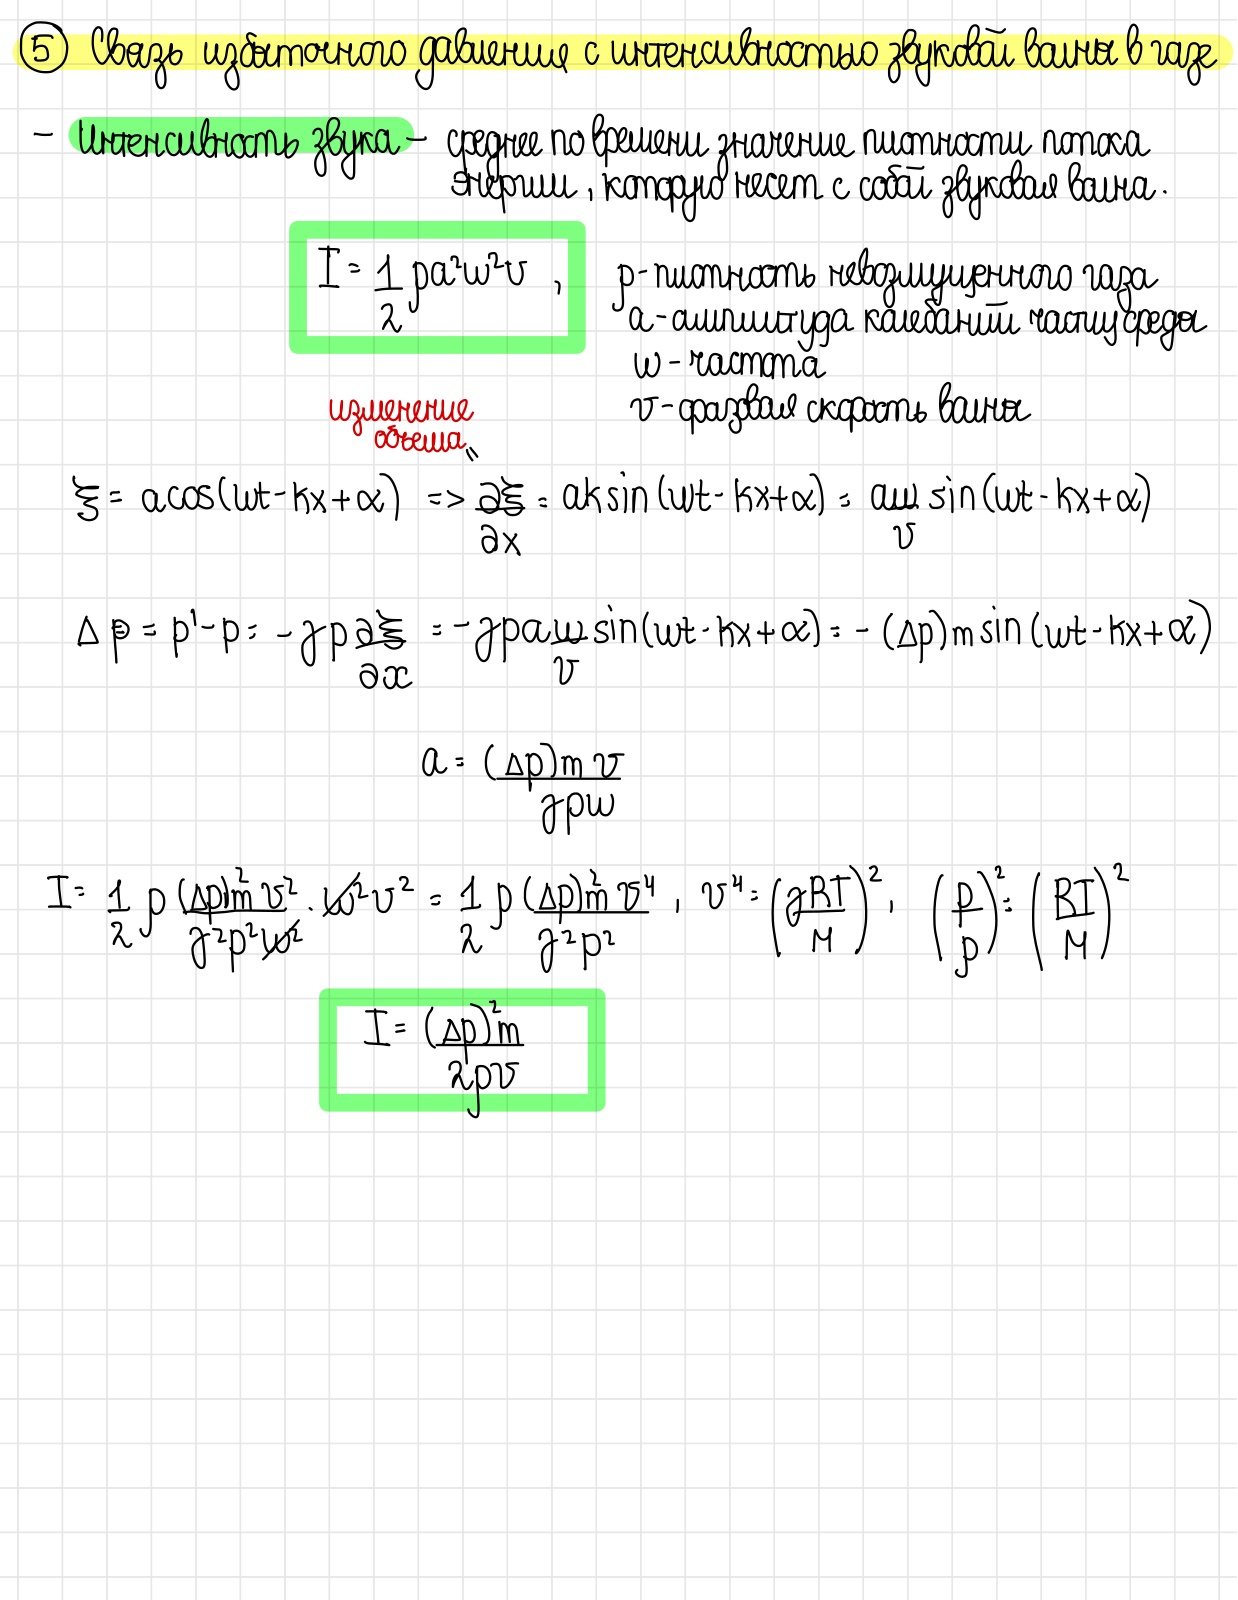 ⑤ Связь избыточного давления с интенсивностью звуковой волны в газе
- Интенсивность звука - среднее по времени значение плотности потока
энергии, которую несет с собой звуковая волна.
I = 1/2 ρa²w²v , ρ - плотность невозмущенного газа
a - амплитуда колебаний частиц среды
w - частота
v - фазовая скорость волны
изменение
объема "
ξ = acos(wt - kx + α) => ∂ξ/∂x = ak sin(wt - kx + α) = aw/v sin(wt - kx + α)
Δp = p' - p = -γp ∂ξ/∂x = -γpa w/v sin(wt - kx + α) = -(Δp)m sin(wt - kx + α)
a = (Δp)m v / γpw
I = 1/2 ρ (Δp)²m v² / γ²p²w² · w²v² = 1/2 ρ (Δp)²m v⁴ / γ²p² , v⁴ = (γRT/M)² , (p/ρ)² = (RT/M)²
I = (Δp)²m / 2ρv